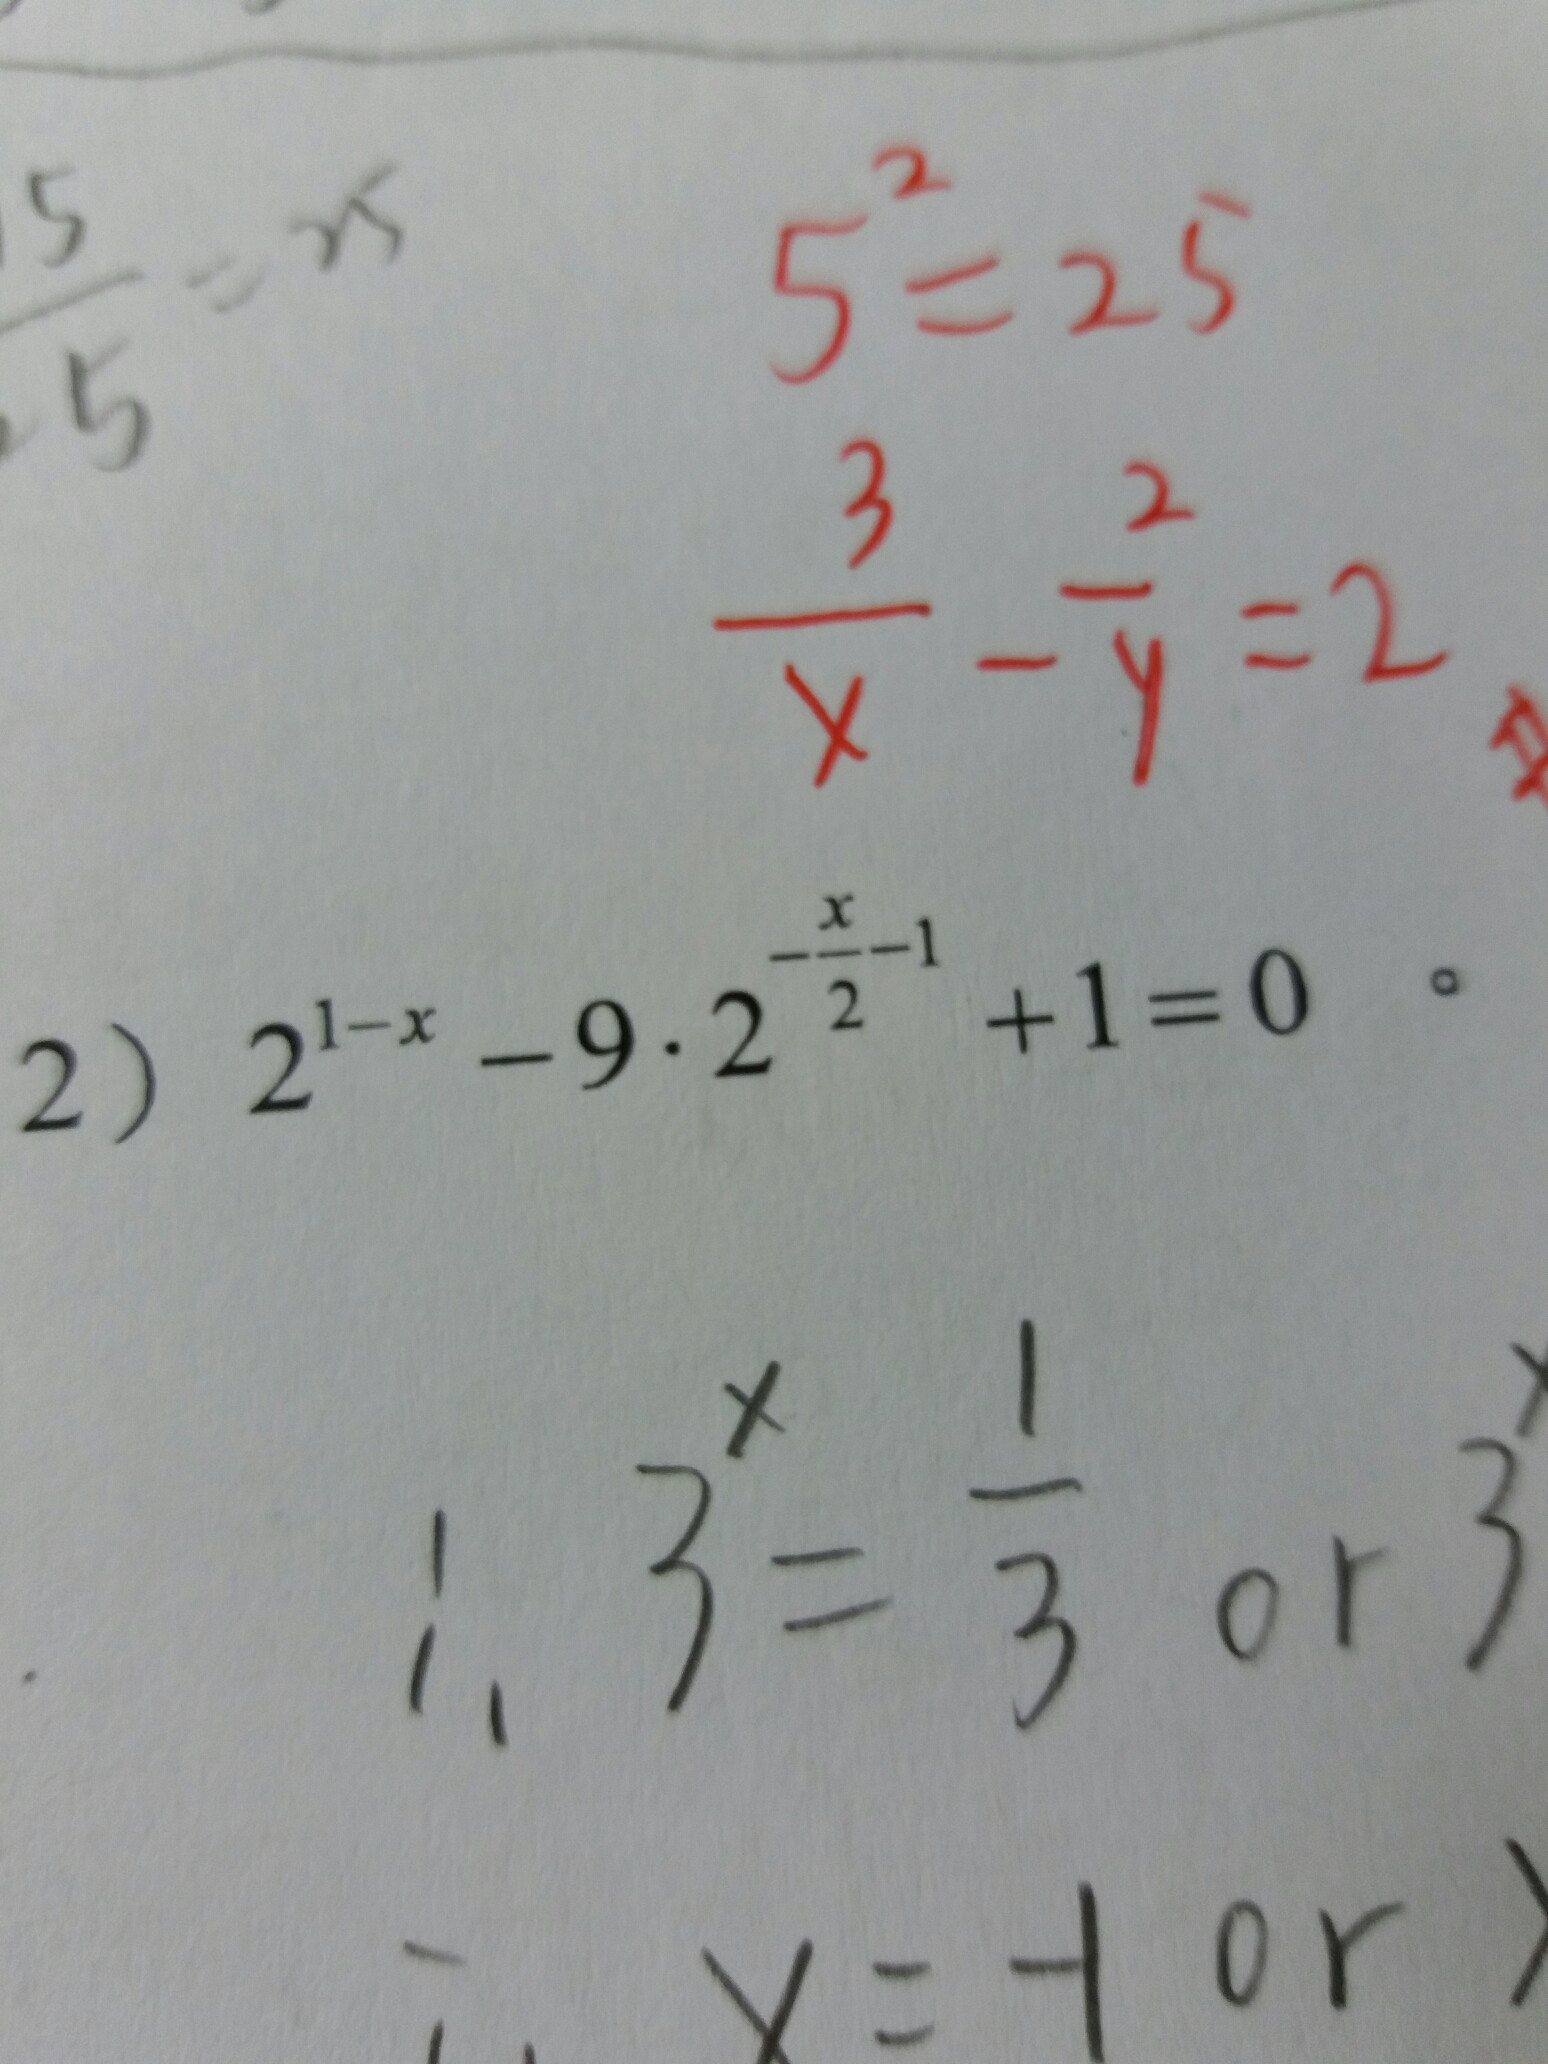 5 = 25
5
5² = 25
3/x - 2/y = 2
2) 2^{1-x} - 9·2^{-x/2-1} + 1 = 0 。
3^x = 1/3 or 3^x
x = -1 or x